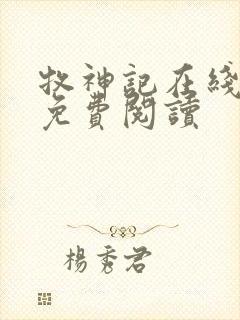 牧神記在綫
免費閱讀
楊秀君